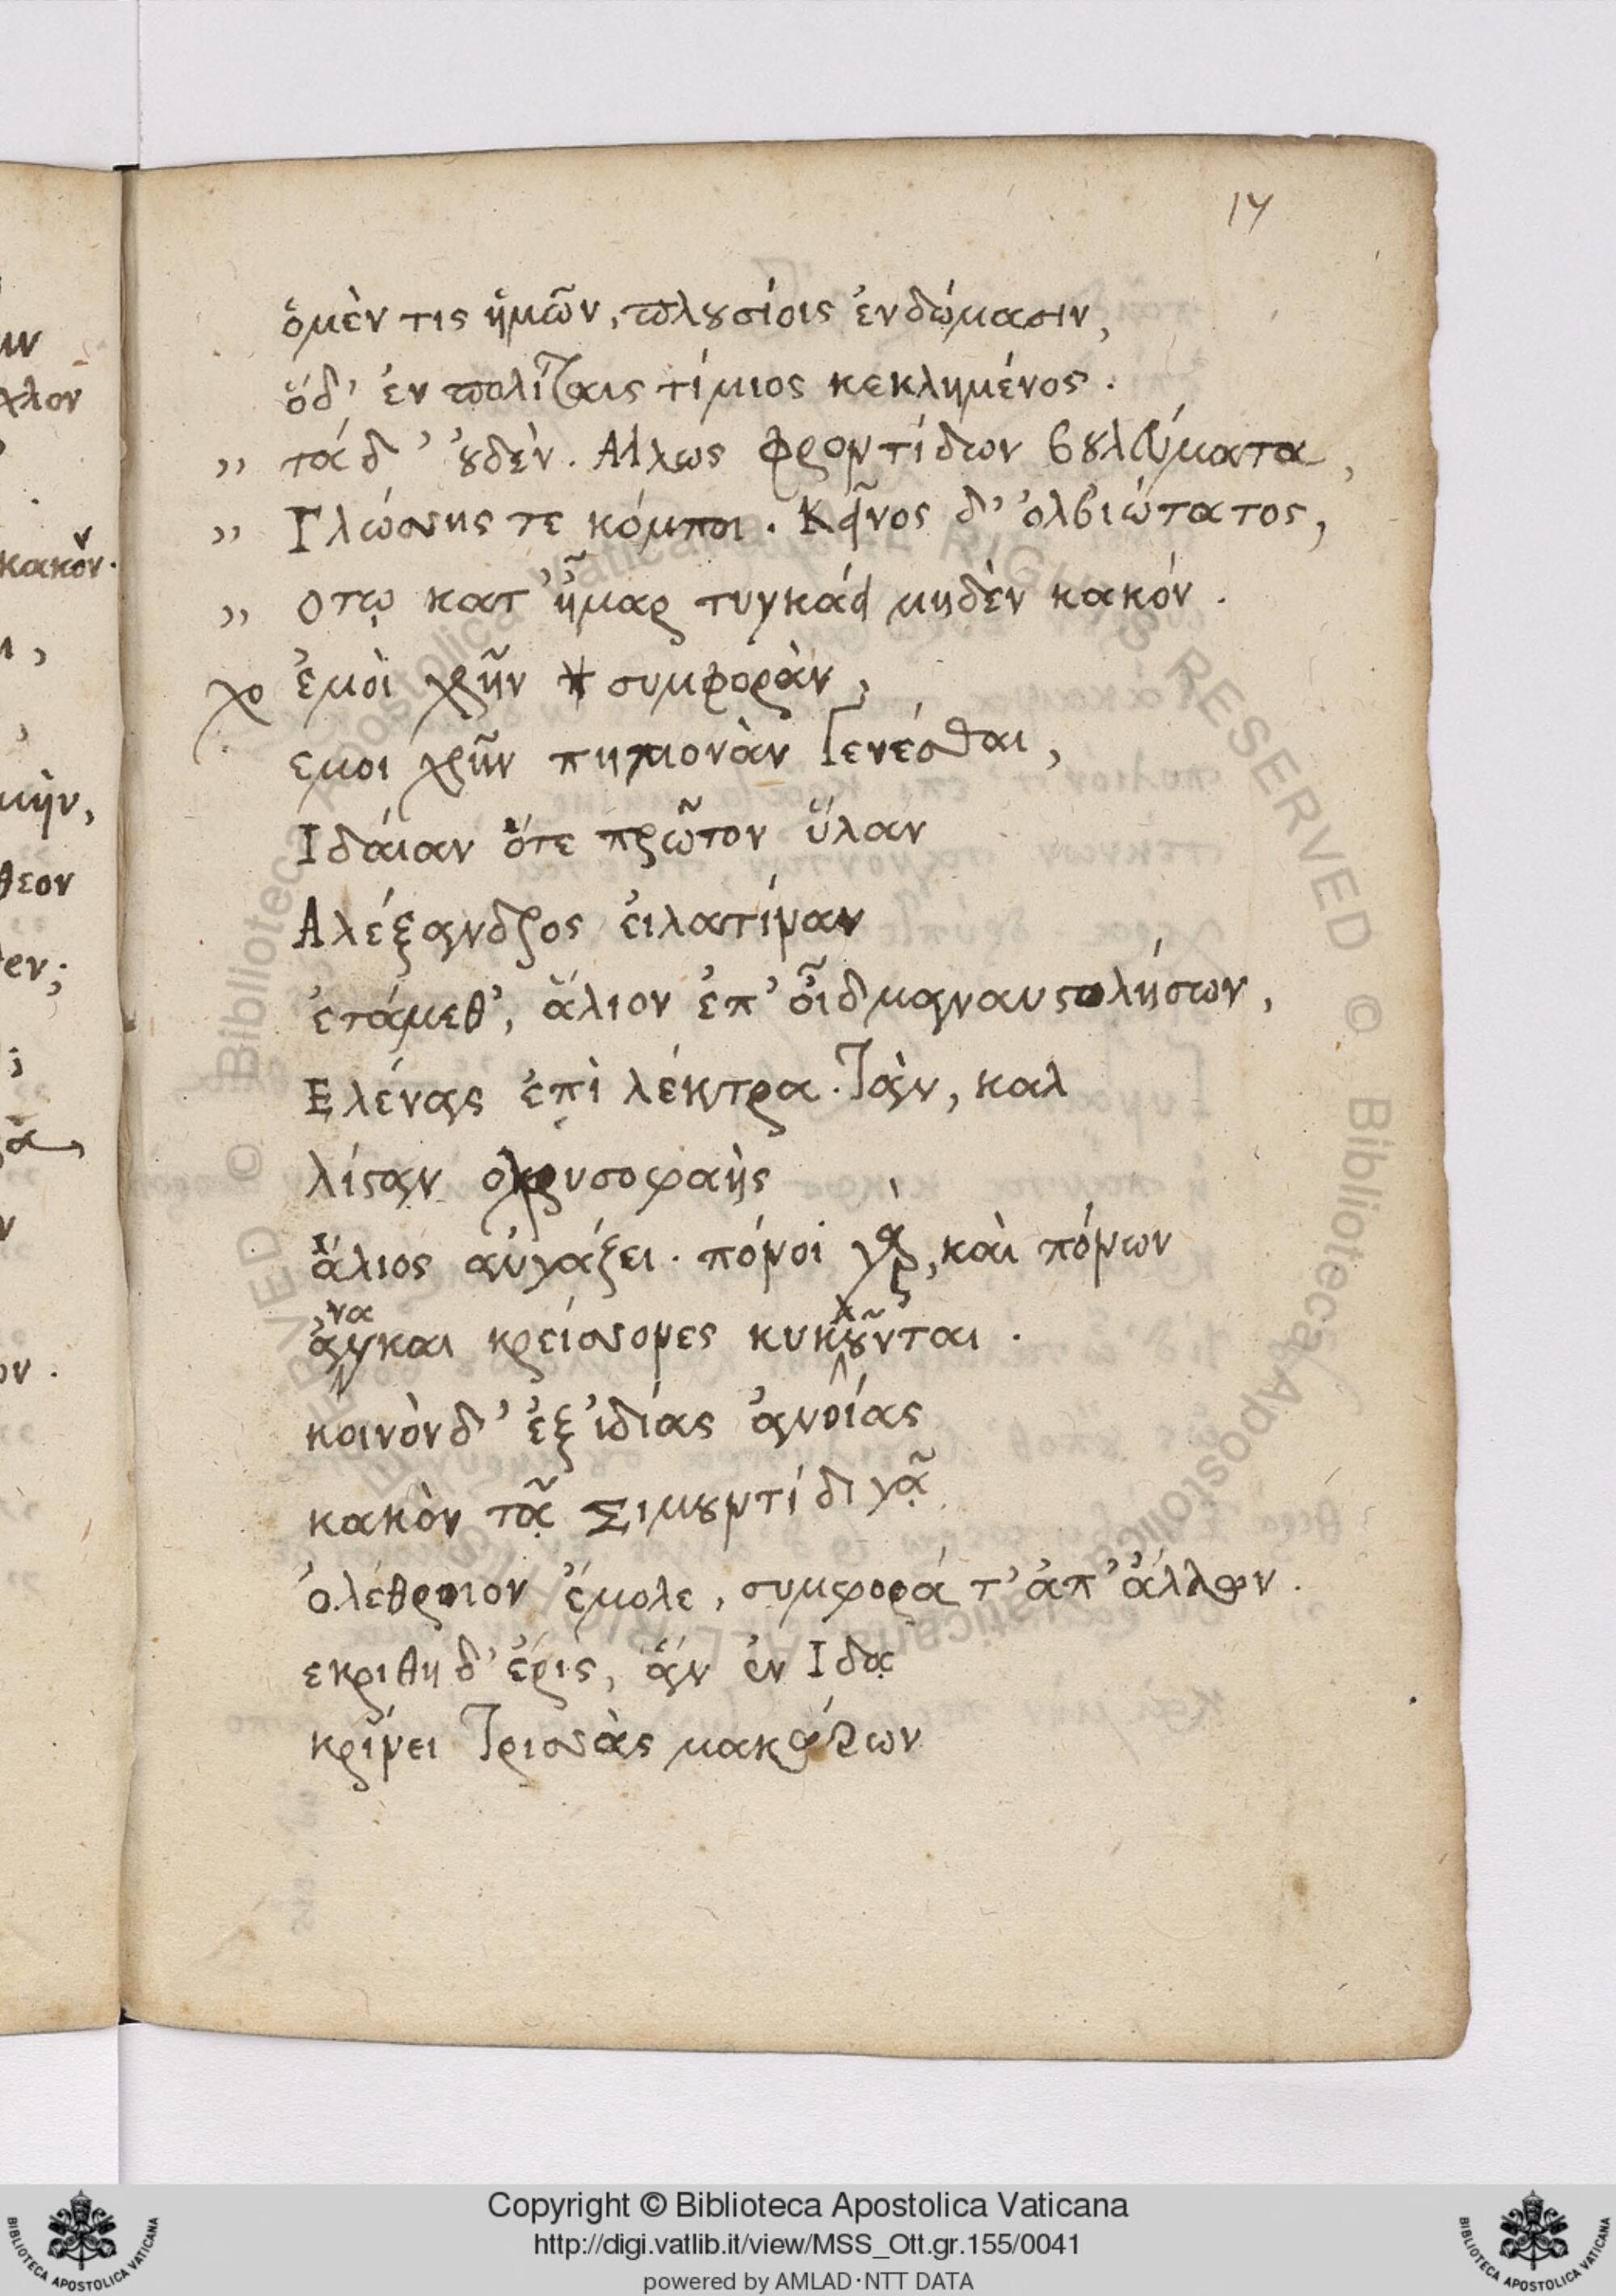 17
ὁμὲν τις ἡμῶν, πλουσίοις ἐνδώμασιν,
ὁδ' ἐν πολίταις τίμιος κεκλημένος.
,, τάδ' οὐδέν. Αλλως φροντίδων βουλεύματα,
,, Γλώσσης τε κόμποι. Κεῖνος δ' ὀλβιώτατος,
,, Οτῳ κατ' ἦμαρ τυγχάνει μηδὲν κακόν.
χο ἐμοὶ χρῆν συμφορὰν,
εμοι χρῆν πημονὰν γενέσθαι,
Ιδάιαν ὅτε πρῶτον ὕλαν
Αλέξανδρος ἐιλατίναν
ἐτάμεθ', ἅλιον ἐπ' οἶδμαναυστολήσων,
Ελένας ἐπὶ λέκτρα. Τὰν, καλ
λίσταν ὁχρυσοφαὴς
ἅλιος αὐγάζει. πόνοι γὰρ, καὶ πόνων
ἀνάγκαι κρείσσονες κυκλοῦνται.
κοινὸνδ' ἐξ ἰδίας ἀνοίας
κακὸν τᾷ Σιμουντίδι γᾷ
ὀλέθριον ἔμολε, συμφορά τ' ἀπ' ἄλλων.
εκριθη δ' ἔρις, ἃν ἐν Ιδᾳ
κρίνει Τρισσὰς μακάρων
ALL RIGHTS RESERVED © Biblioteca Apostolica Vaticana
Copyright © Biblioteca Apostolica Vaticana
http://digi.vatlib.it/view/MSS_Ott.gr.155/0041
powered by AMLAD·NTT DATA
BIBLIOTECA APOSTOLICA VATICANA
BIBLIOTECA APOSTOLICA VATICANA